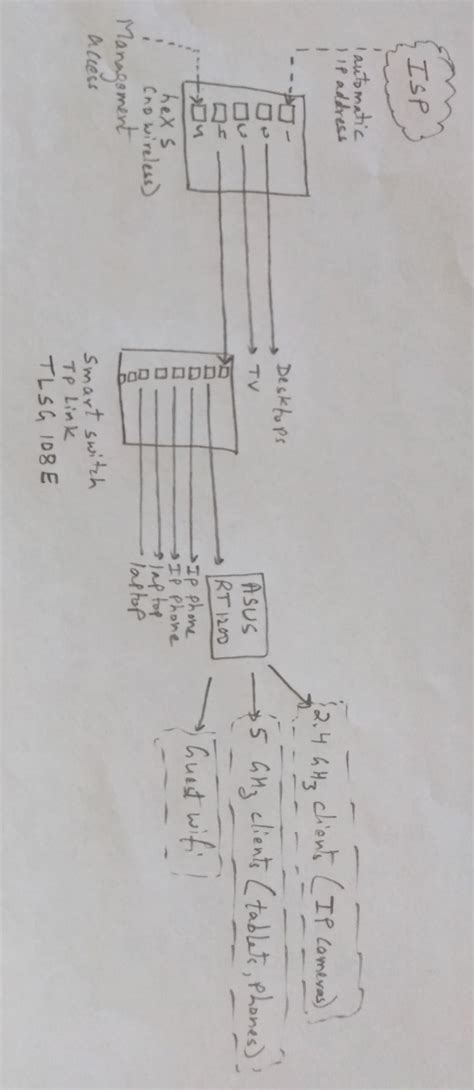 ISP
automatic
ip address
1
2
3
4
5
hex S
(no wireless)
Management
access
Desktops
TV
Smart switch
TP Link
TLSG 108E
ASUS
RT1200
IP phone
IP phone
laptop
laptop
2.4 GHz clients (IP cameras)
5 GHz clients (tablets, phones)
Guest wifi